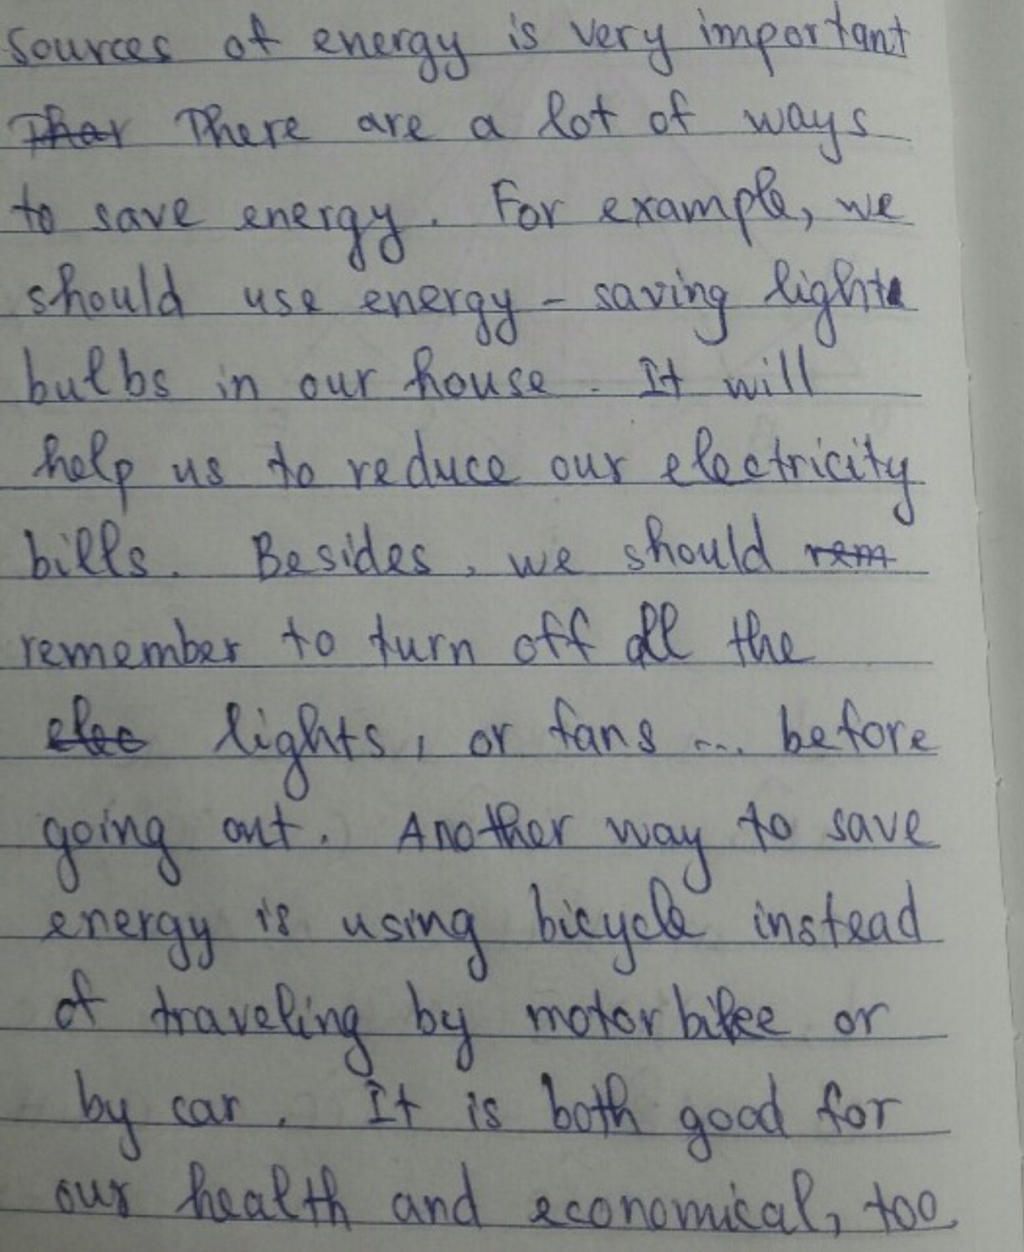 Sources of energy is very important
There are a lot of ways
to save energy. For example, we
should use energy - saving light
bulbs in our house. It will
help us to reduce our electricity
bills. Besides, we should rem
remember to turn off all the
elec lights, or fans ... before
going out. Another way to save
energy is using bicycle instead
of traveling by motorbike or
by car. It is both good for
our health and economical, too